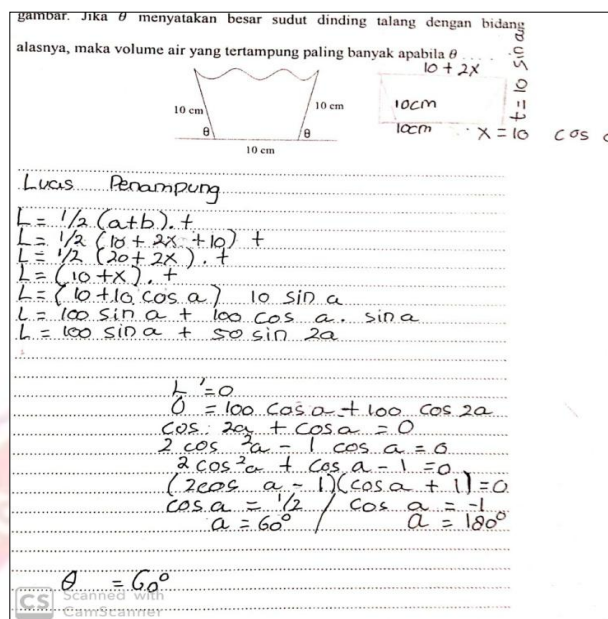 gambar. Jika θ menyatakan besar sudut dinding talang dengan bidang
alasnya, maka volume air yang tertampung paling banyak apabila θ ....
10 cm
10 cm
θ
θ
10 cm
10 + 2x
10cm
10cm
t = 10 sin a
x = 10 cos
Luas Penampung
L = 1/2 (a+b). t
L = 1/2 (10 + 2x + 10) t
L = 1/2 (20 + 2x) . t
L = (10 + x) . t
L = (10 + 10 cos a) 10 sin a
L = 100 sin a + 100 cos a . sin a
L = 100 sin a + 50 sin 2a
L' = 0
0 = 100 cos a + 100 cos 2a
cos 2a + cos a = 0
2 cos ²a - 1 cos a = 0
2 cos² a + cos a - 1 = 0
(2 cos a - 1)(cos a + 1) = 0
cos a = 1/2 / cos a = -1
a = 60° a = 180°
θ = 60°
CS Scanned with
CamScanner